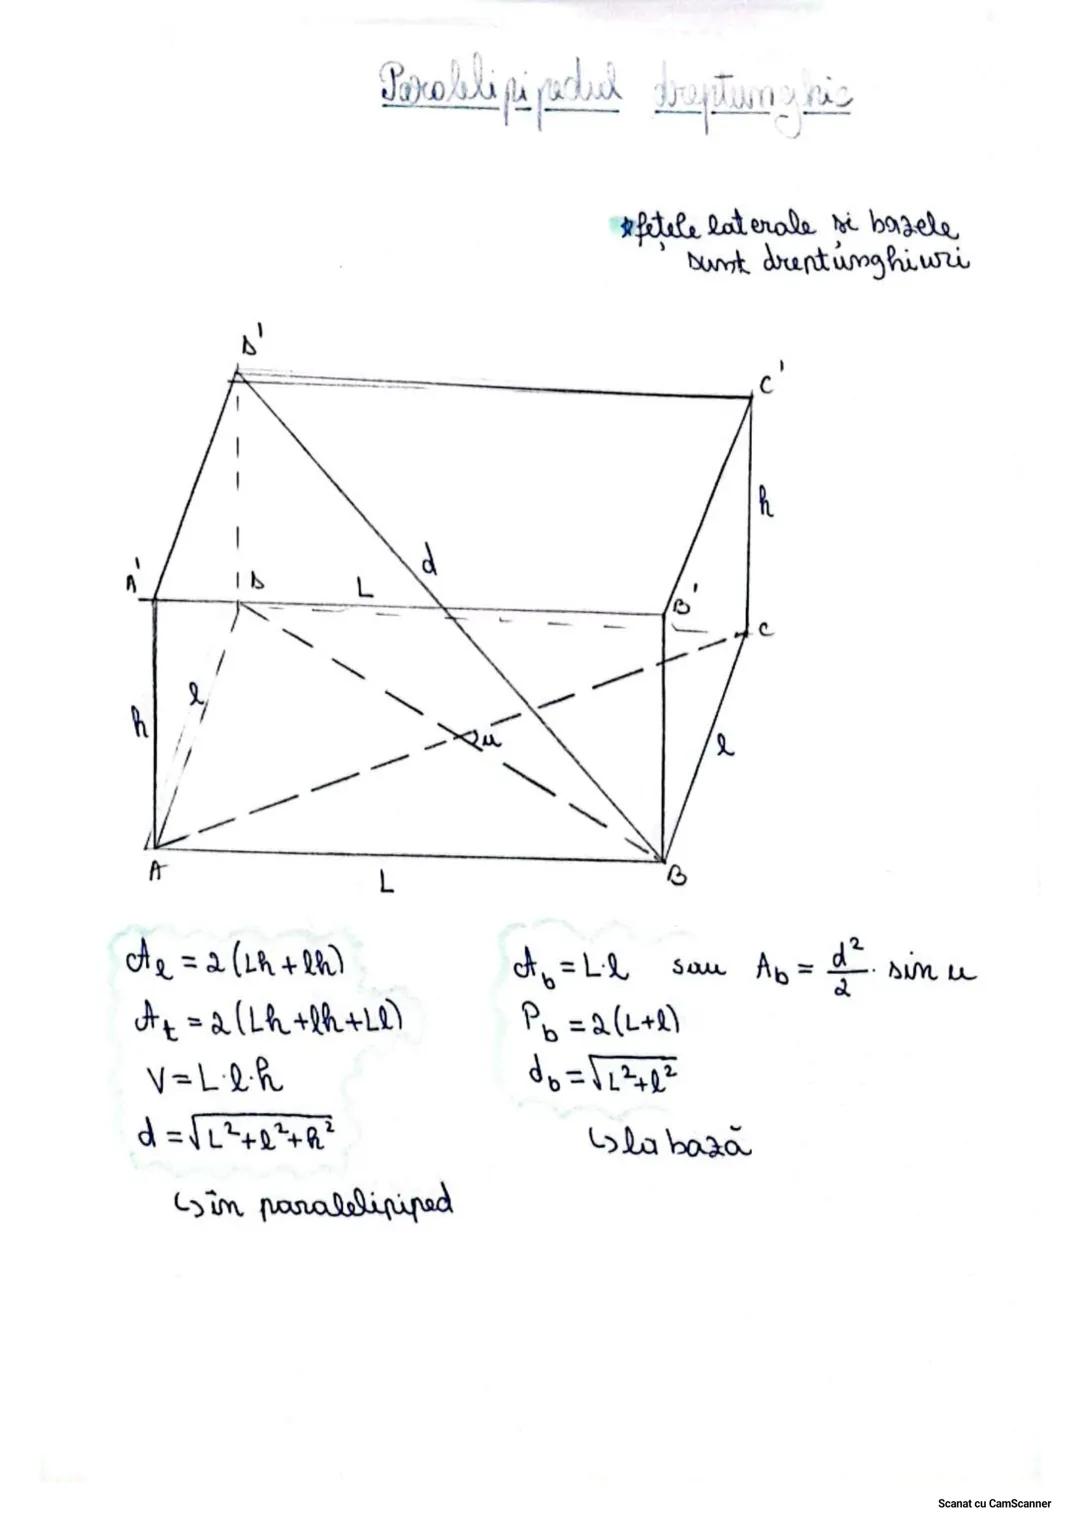 Paralelipipedul dreptunghic
*fețele laterale și bazele
sunt dreptunghiuri
D'
C'
h
d
A'
D
L
B'
C
l
h
u
l
A
L
B
Aℓ = 2(Lh+lh)
At = 2(Lh+lh+Ll)
V=L·l·h
d = √L²+l²+h²
↳ în paralelipiped
Ab = L·l sau Ab = d²/2 · sin u
Pb = 2(L+l)
db = √L²+l²
↳ la bază
Scanat cu CamScanner